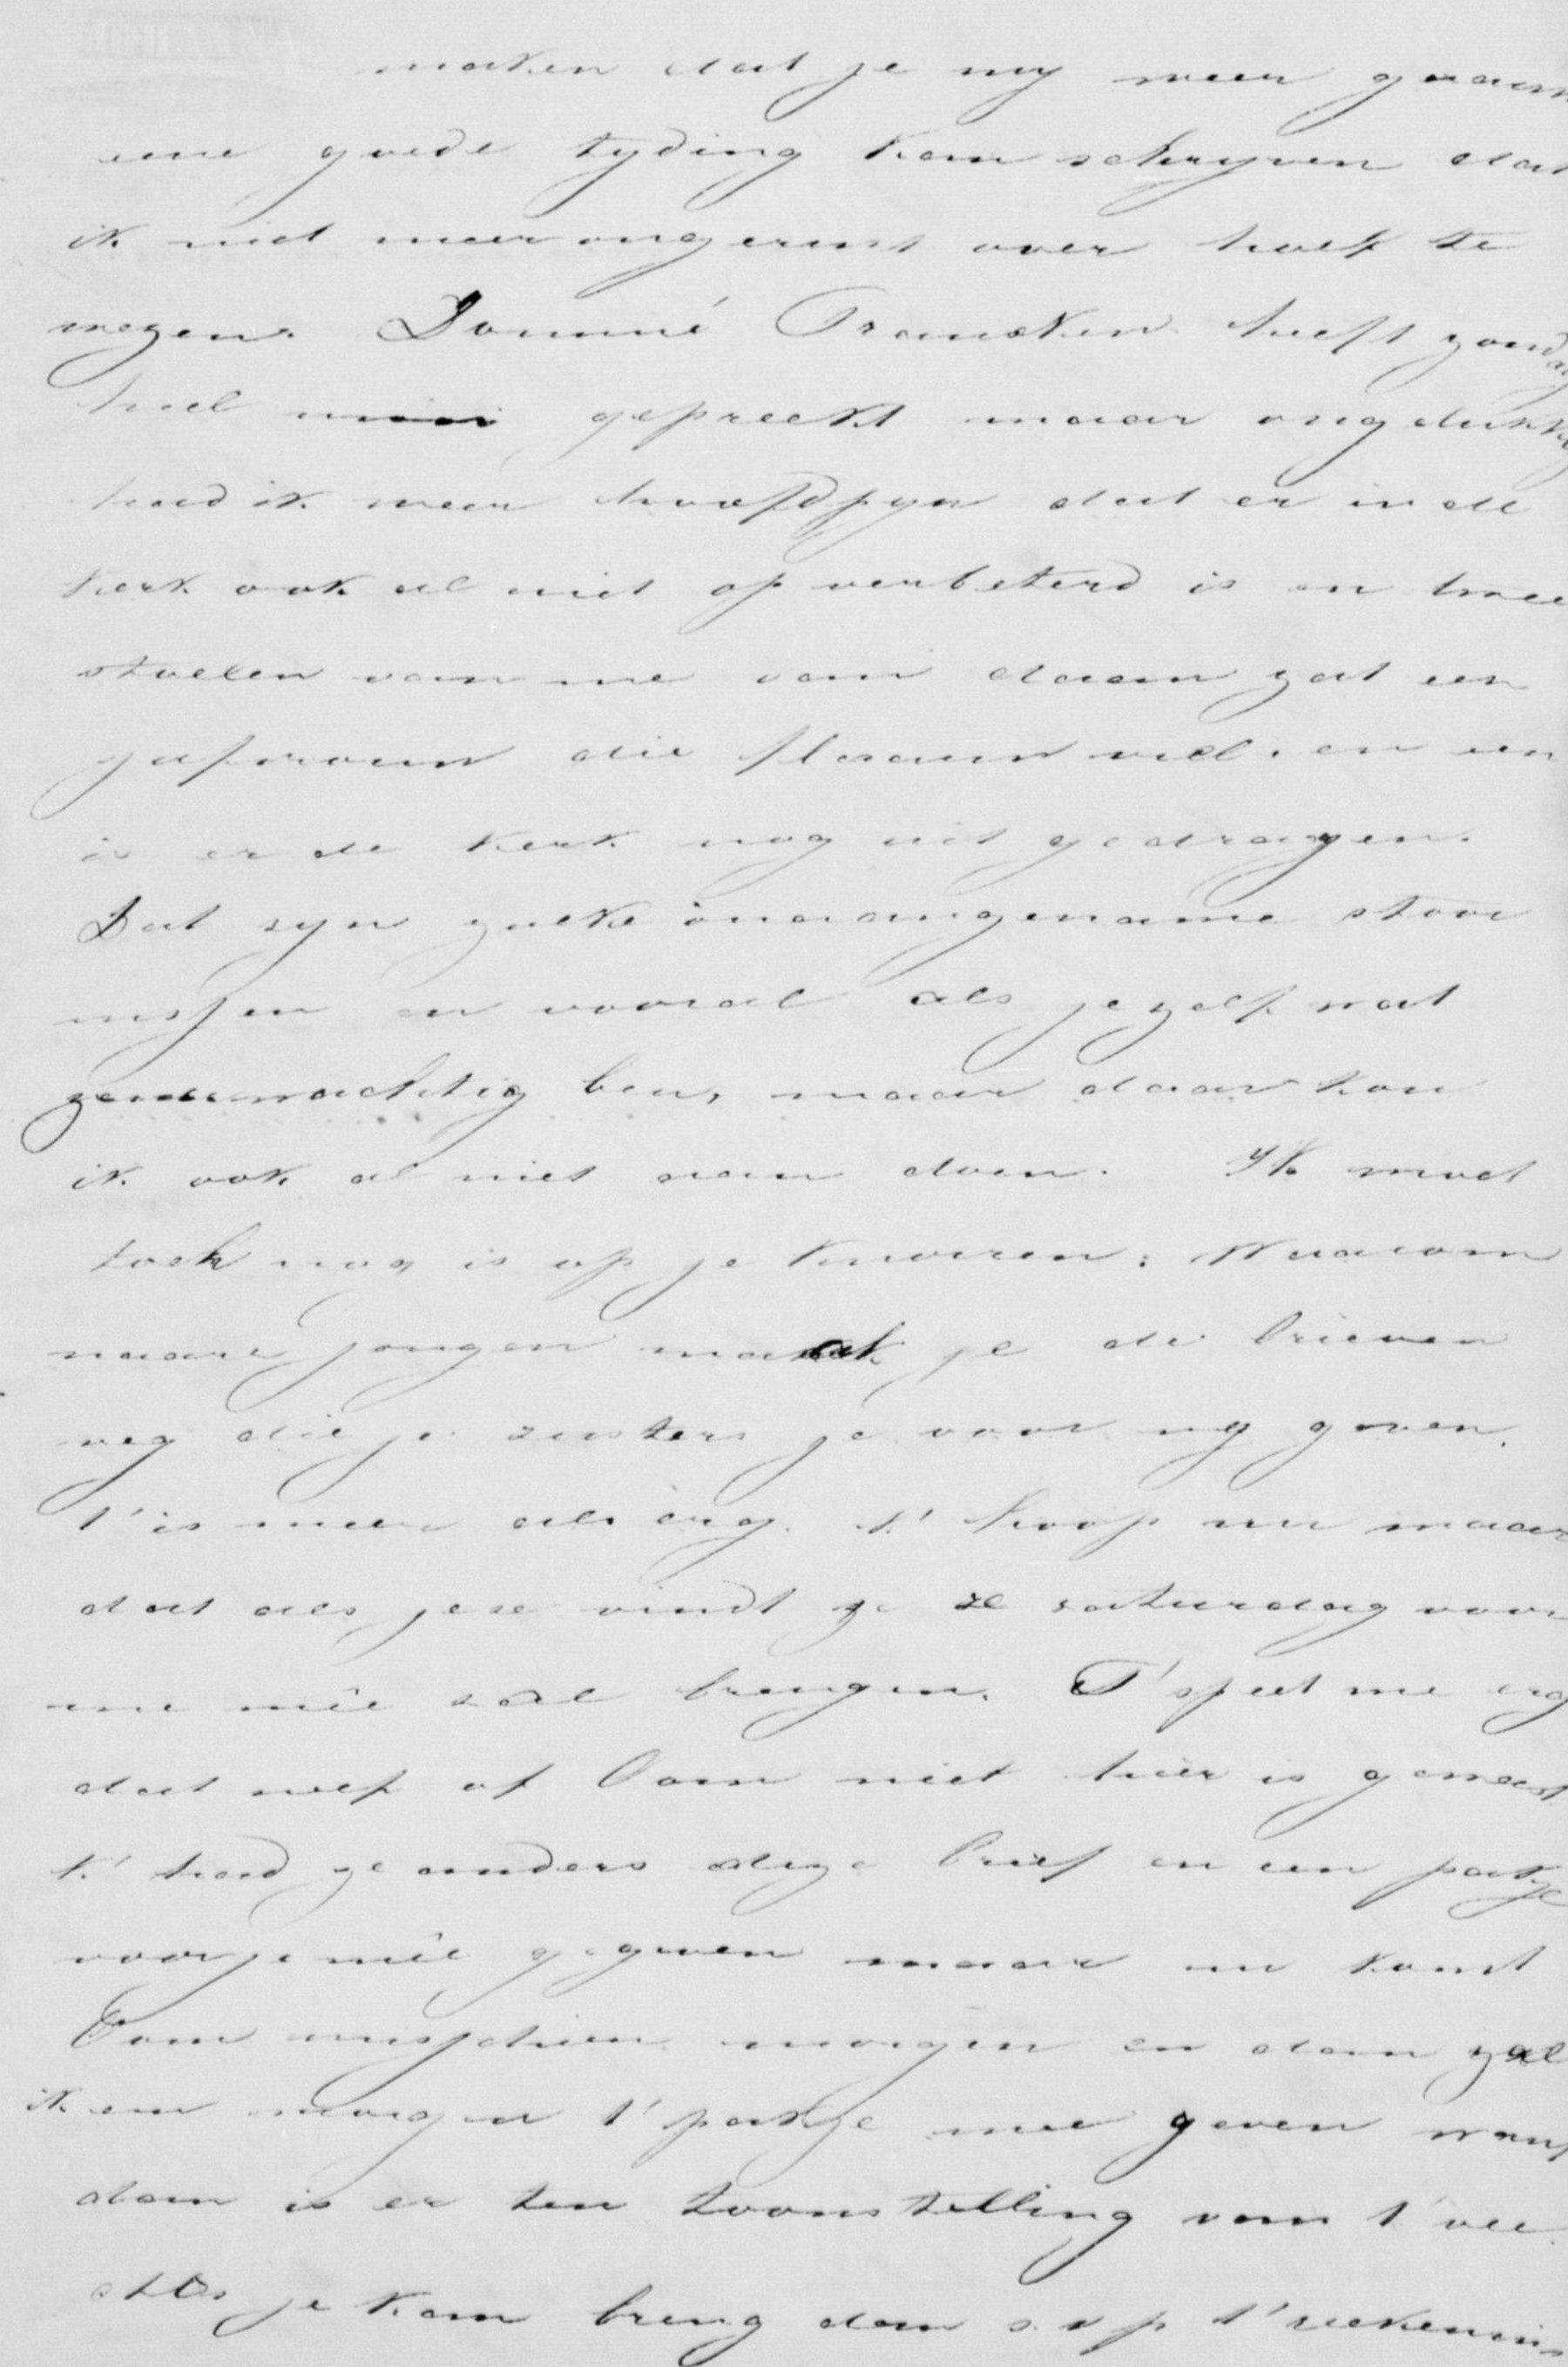 maken dat je my weer gaauw
eene goede tyding kan schryven dat
ik niet meer ongerust over hoef te
wezen. Dominé Francken heeft zondag
heel mooi gepreekt maar ongelukkig
had ik weer hoofdpyn dat er in de
kerk ook al niet op verbeterd is en twee
stoelen van me van daan zat een
jufvrouw die flaauw viel. en een
is er de kerk nog uit gedragen.
Dat zyn zulke onaangename stoor
nissen en vooral als je zelf wat
zenuwachtig ben, maar daar kon
ik ook al niet aan doen. Ik moet
toch nog is op je knorren: Waarom
naare jongen maak je de brieven
weg die je zusters je voor my geven.
t' is meer als erg. k' hoop nu maar
dat als je ze vindt je ze saturdag voor
me mêe zal brengen. T' speet me erg
dat neef of Oom niet hier is geweest
k' had ze anders deze brief en een pakje
voor je mêe gegeven maar nu komt
Oom misschien morgen en dan zal
ik em morgen t' pakje mee geven want
dan is er ten toonstelling van t' vee.
Als je kan breng dan s.v.p t' reekenin